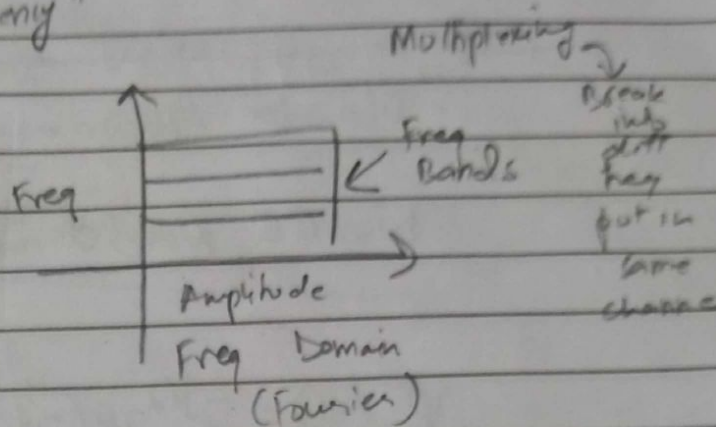 Multiplexing
Break
into
diff
freq
put in
same
channe
Freq
Bands
Freq
Amplitude
Freq Domain
(Fourier)